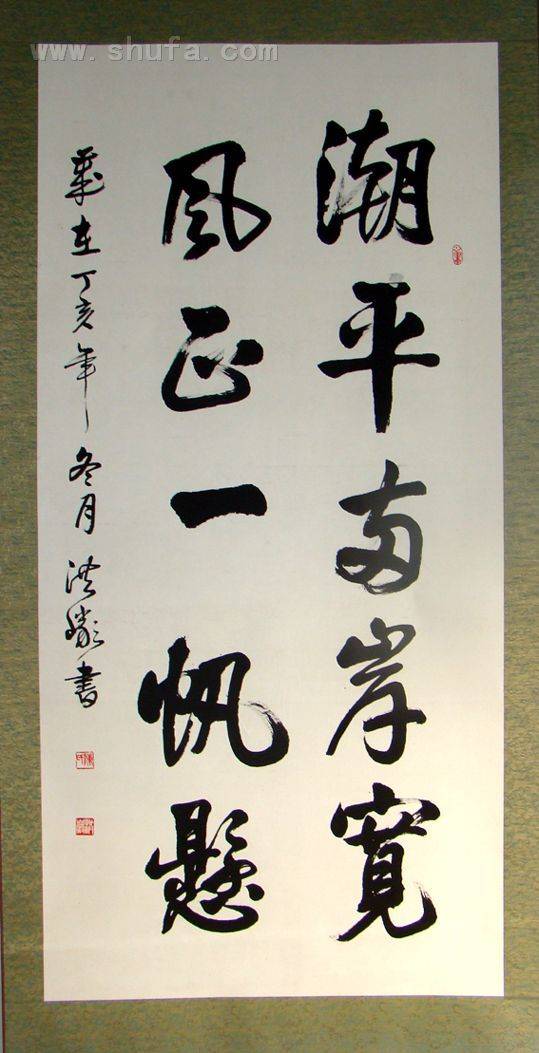 www.shufa.com
潮平兩岸寬
風正一帆懸
歲在丁亥年冬月洪書